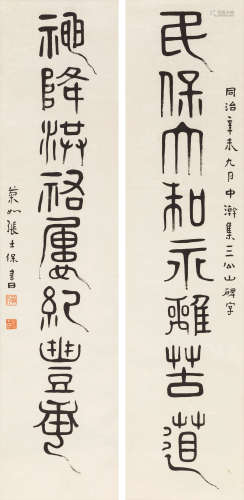 同治辛未九月中澣集三公山碑字
民保大和永離苦道
神降洪祐屢紀豐年
菊如張士保書